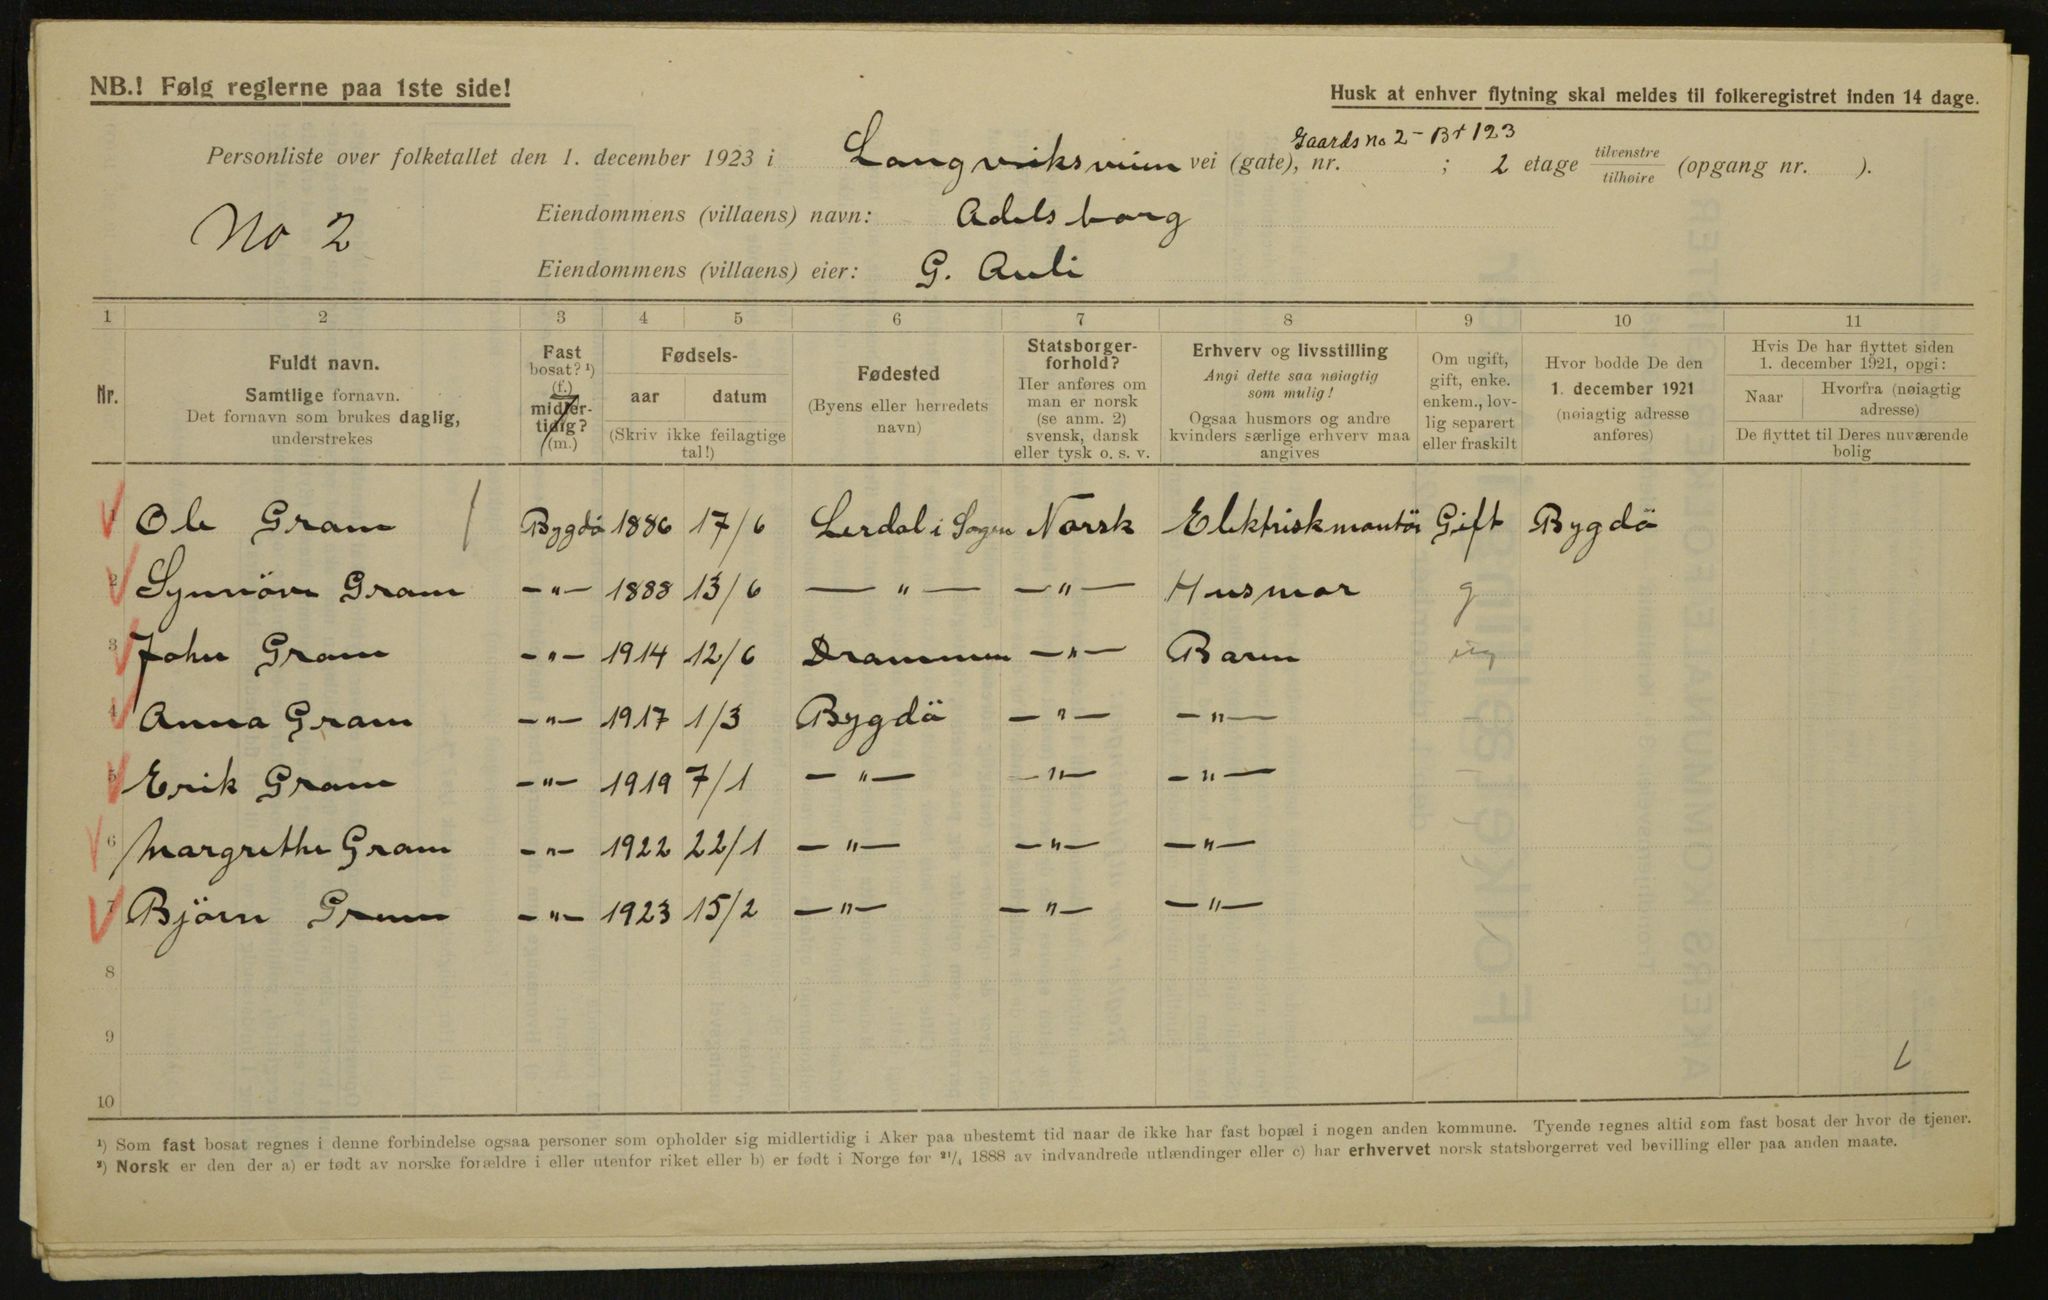 NB.! Følg reglerne paa 1ste side!
Husk at enhver flytning skal meldes til folkeregistret inden 14 dage.
Gaards No 2 - Br 123
Personliste over folketallet den 1. december 1923 i Langviksveien vei (gate), nr. ; 2 etage tilvenstre/tilhøire (opgang nr. ).
No 2
Eiendommens (villaens) navn: Adelsborg
Eiendommens (villaens) eier: G. Auli
1 2 3 4 5 6 7 8 9 10 11
Nr.
Fuldt navn.
Samtlige fornavn.
Det fornavn som brukes daglig,
understrekes
Fast
bosat? ¹)
(f.)
midler-
tidig?
(m.)
Fødsels-
aar datum
(Skriv ikke feilagtige
tal!)
Fødested
(Byens eller herredets
navn)
Statsborger-
forhold?
Her anføres om
man er norsk
(se anm. 2)
svensk, dansk
eller tysk o. s. v.
Erhverv og livsstilling
Angi dette saa nøiagtig
som mulig!
Ogsaa husmors og andre
kvinders særlige erhverv maa
angives
Om ugift,
gift, enke.
enkem., lov-
lig separert
eller fraskilt
Hvor bodde De den
1. december 1921
(nøiagtig adresse
anføres)
Hvis De har flyttet siden
1. december 1921, opgi:
Naar Hvorfra (nøiagtig
adresse)
De flyttet til Deres nuværende
bolig
1 Ole Gram Bygdö 1886 17/6 Lerdal i Sogn Norsk Elektriskmontör Gift Bygdö
2 Synnöve Gram -"- 1888 13/6 -"- -"- Husmor g
3 John Gram -"- 1914 12/6 Drammen -"- Barn ug
4 Anna Gram -"- 1917 1/3 Bygdö -"- -"-
5 Erik Gram -"- 1919 7/1 -"- -"- -"-
6 Margrethe Gram -"- 1922 22/1 -"- -"- -"-
7 Björn Gram -"- 1923 15/2 -"- -"- -"-
8
9
10
¹) Som fast bosat regnes i denne forbindelse ogsaa personer som opholder sig midlertidig i Aker paa ubestemt tid naar de ikke har fast bopæl i nogen anden kommune. Tyende regnes altid som fast bosat der hvor de tjener.
²) Norsk er den der a) er født av norske forældre i eller utenfor riket eller b) er født i Norge før ²¹/₄ 1888 av indvandrede utlændinger eller c) har erhvervet norsk statsborgerret ved bevilling eller paa anden maate.